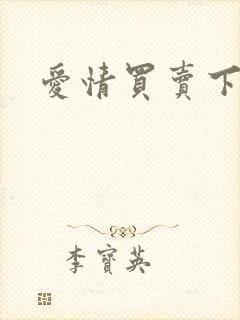 愛情買賣下
李寶英